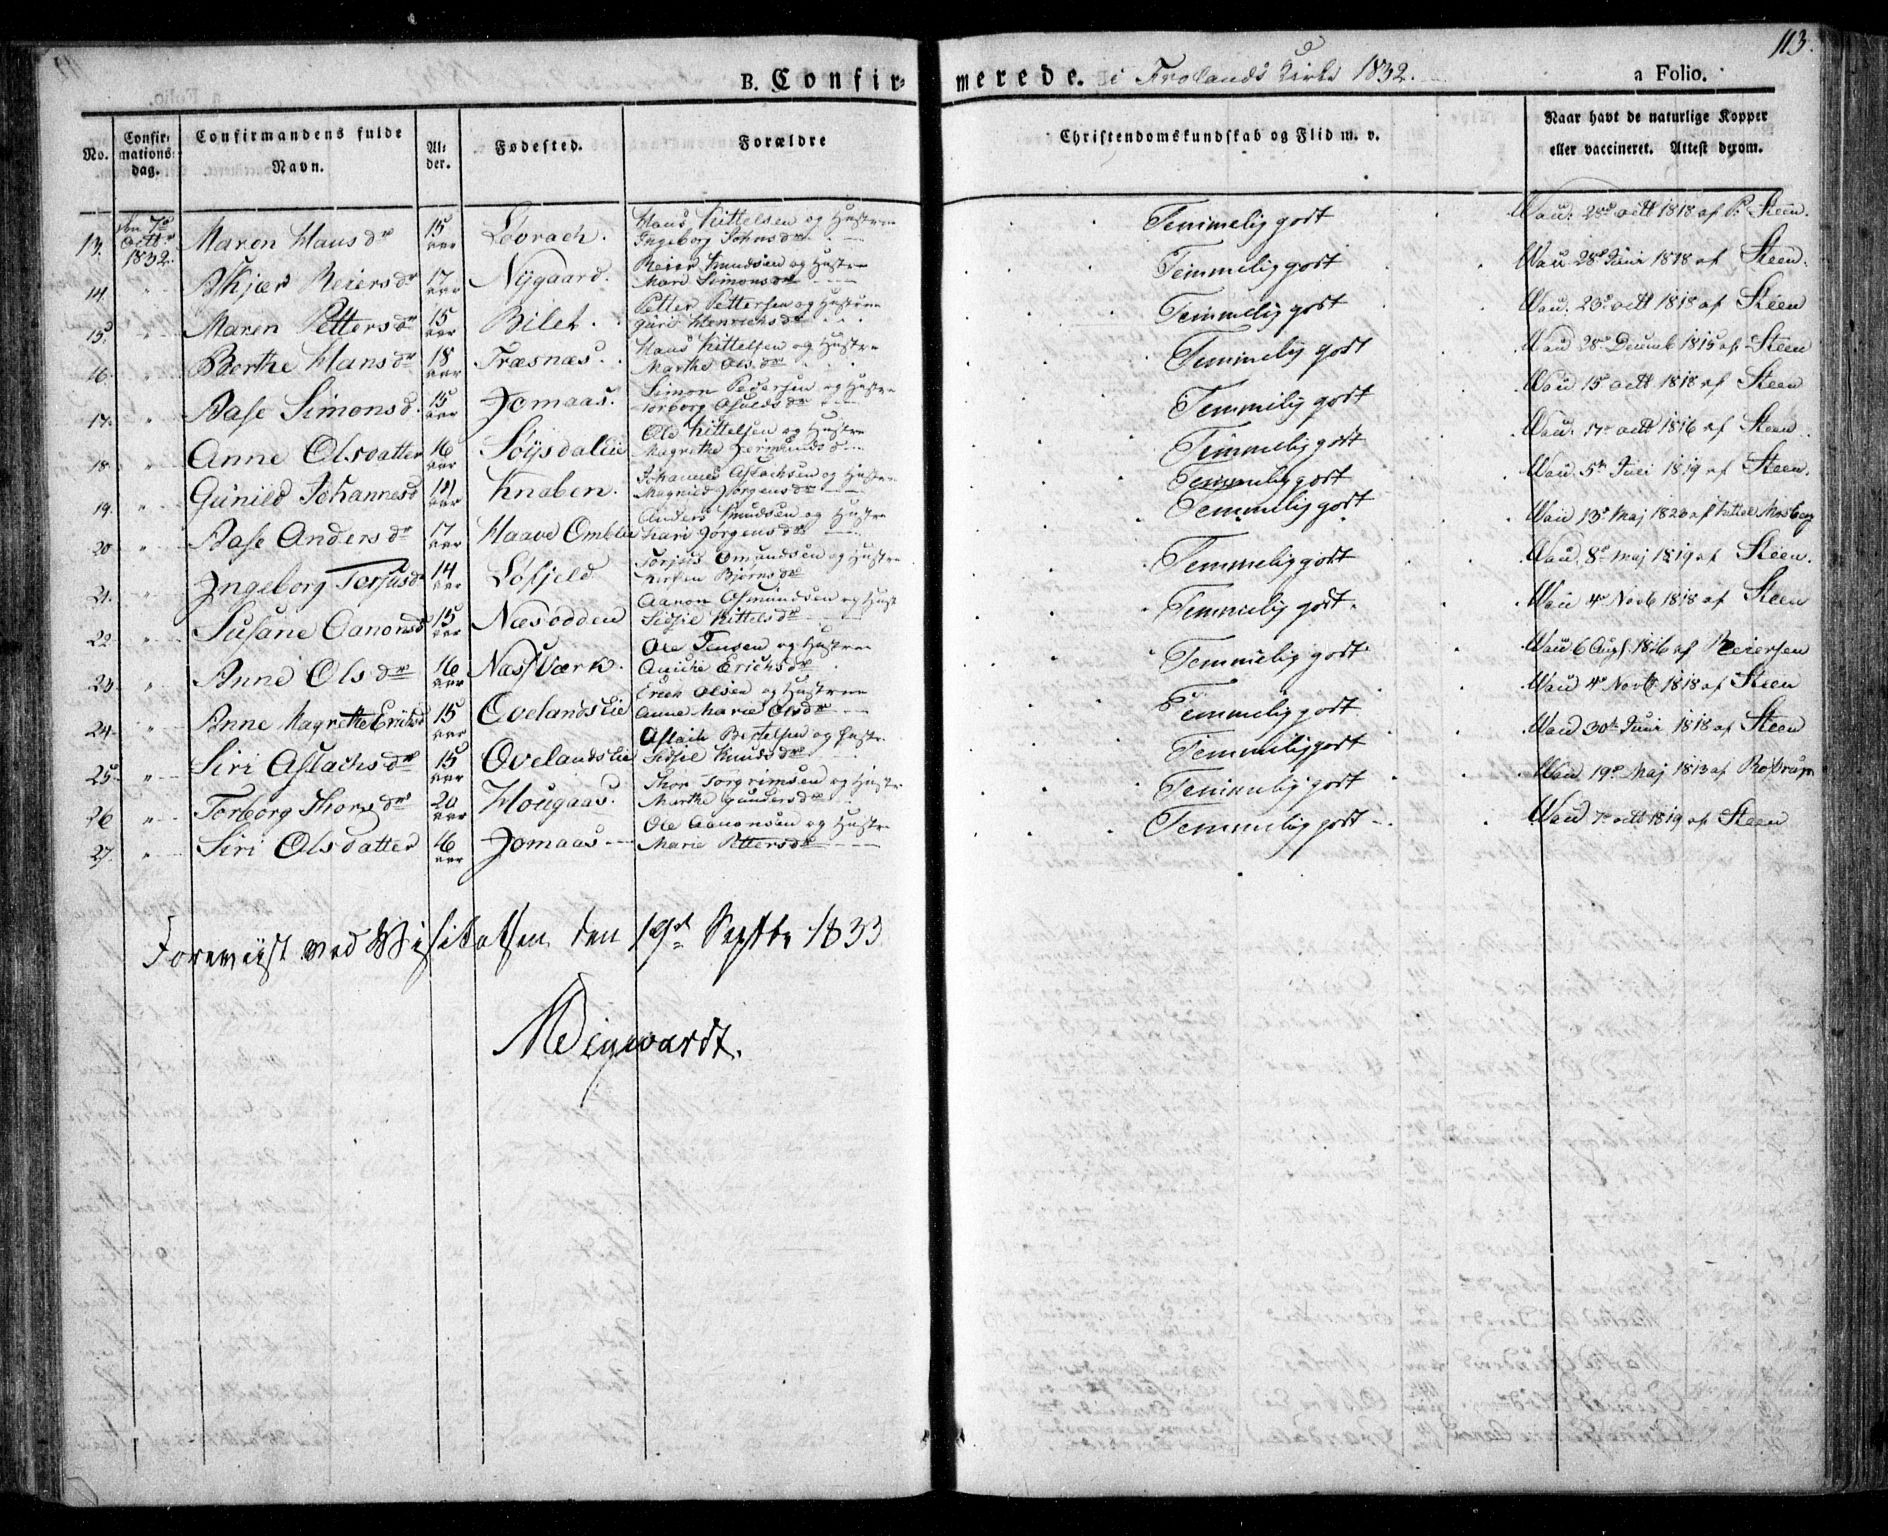 113.
B. Confirmerede. i Frolands Kirke 1832. a Folio.
No. Confirmationsdag. Confirmandens fulde Navn. Alder. Fødested. Forældre Christendomskundskab og Flid m. v. Naar havt de naturlige Kopper eller vaccineret. Attest derom.
13. den 7de Octbr 1832 Maren Hansdr 15 aar Løvrach. Hans Kittelsen og Hustrue Ingeborg Johnsdr Temmelig godt Vaci. 28de octt 1818 af P. Steen.
14 " Reiersdr 17 aar Nÿgaard. Reier Knudsen og Hustru Mari Simonsdr Temmelig godt Vaci 28de Juni 1818 af Steen.
15. " Maren Pettersdr 15 aar Bilet. Petter Pettersen og Hustrue Guro Henrichsdr Temmelig godt Vaci. 23de octt 1818 af Steen
16. " Berthe Hansdr 18 aar Træsnæs. Hans Kittelsen og Hustru Marthe Olsdr Temmelig godt Vaci 28de Decemb 1815 af Steen
17. " Aase Simonsd. 15 aar Jomaas. Simon Pedersen og Hustru Torborg Temmelig godt Vaci 15de octt 1818 af Steen
18. " Anne Olsdatter 16 aar Søÿsdalen Ole Kittelsen og Hustru Magrethe Temmelig godt Vaci. 17de octt 1816 af Steen
19. " Gunild Johannesd 14 aar Knaben. Johannes Aslachsen og Hustru Magnild Jørgensdr Temmelig godt Vaci 5te Juli 1819 af Steen.
20 " Aase Andersdr 17 aar Haave Omblie Anders Knudsen og Hustru Kari Jørgensdr Temmelig godt Vaci 13de Maj 1820 af Kittel Mosberg
21. " Ingeborg Terjusdr 14 aar Løfjeld Torjus Omundsen og Hustru Kirsten Bjørnsdr Temmelig godt Vaci 8de Maj 1819 af Steen.
22. " Susane Aanonsd 15 aar Næsodden Aanon Asmundsen og Hust Sidsel Kittelsdr Temmelig godt. Vaci 4de Novb 1818 af Steen
23 " Anne Olsdr 16 aar Næs Værk. Ole Jensen og Hustrue Aniche Erichsdr Temmelig godt. Vaci 6 Augs 1816 af Reiersen
24 " Anne Magrethe Ericksd 15 aar Ovelandslie Erich Olsen og Hustrue Anne Marie Olsdr Temmelig godt Vaci 4de Novb 1818 af Steen
25 " Siri Aslachsdr 15 aar Ovelandslie Aslach Bertelsen og Hustr. Sidsel Knudsdr Temmelig godt Vaci 30te Juni 1818 af Steen
26 " Torborg Thorsdr 20 aar Hougaas. Thor Torgrimsen og Hustr Marthe Gundersdr Temmelig godt Vaci 19de Maj 1813 af
27. " Siri Olsdatter 16 aar Jomaas Ole Aanonsen og Hustru Marie Pettersdr Temmelig godt Vaci 7de octt 1819 af Steen
Foreviist ved Visitatsen den 19de Septbr 1833